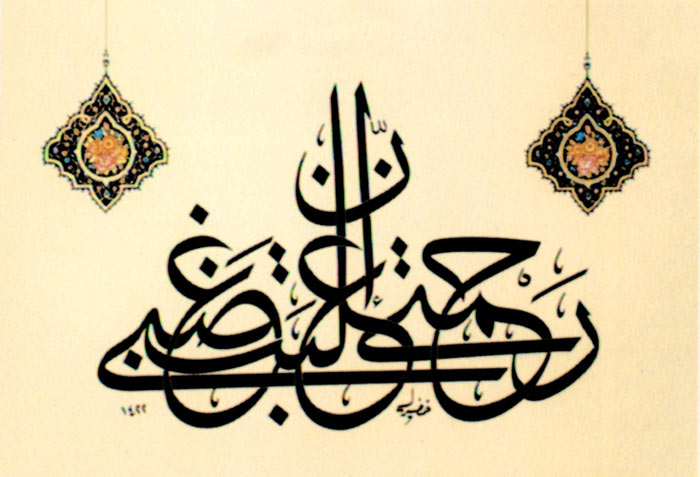 إن رحمتي غلبت غضبي
خضير
١٤٢٢